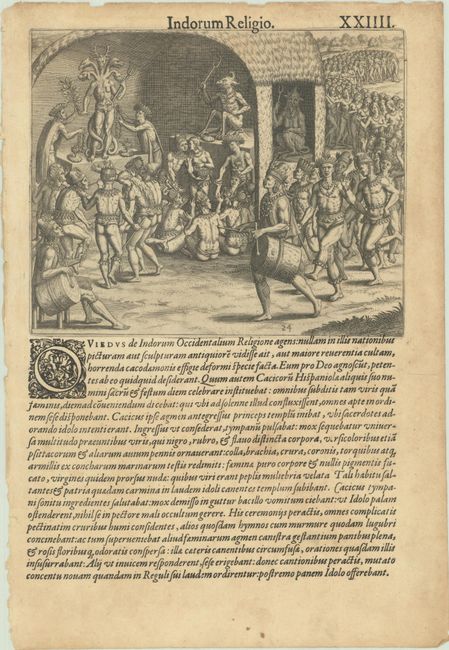 Indorum Religio. XXIIII.
24
OVIEDVS de Indorum Occidentalium Religione agens: nullam in illis nationibus
picturam aut sculpturam antiquiorē vidisse ait, aut maiore reverentia cultam,
horrenda cacodæmonis effigie deformi specie facta. Eum pro Deo agnoscūt, peten-
tes ab eo quidquid desiderant. Quum autem Cacicorū Hispaniola aliquis suo nu-
mini sacrū & festum diem celebrare instituebat: omnibus subditis tam viris quā
faminis, diem ad cōveniendum dicebat: qui vbi ad solenne illud confluxissent, omnes apte in ordi-
nem sese disponebant. Cacicus ipse agmen antegressus princeps templū intrat, vbi sacerdotes ad-
orando idolo intenti erant. Ingressus vt consederat, tympanū pulsabat: mox sequebatur vniver-
sa multitudo præeuntibus viris, qui nigro, rubro, & flavo distincta corpora, versicoloribus etiā
psittacorum & aliarum auium pennis ornaverant: colla, brachia, crura, coronis, torquibus atq;
armillis ex concharum marinarum testis redimiti: faminæ puro corpore & nullis pigmentis fu-
cato, virgines quidem prorsus nudæ: quibus viri erant peplis muliebria velata. Tali habitu sal-
tantes & patria quadam carmina in laudem idoli canentes templum subibant. Cacicus tympa-
ni sonitu ingredientes salutabat: mox demisso in guttur bacillo vomitum ciebant: vt Idolo palam
ostenderent, nihil se in pectore mali occultum gerere. His ceremonijs peractis, omnes complicatis
pectinatim cruribus humi considentes, alios quosdam hymnos cum murmure quodam lugubri
concinebant: ac tum superveniebat aliud faminarum agmen canistra gestantium panibus plena,
& rosis floribusq; odoratis conspersa: illæ cæteris canentibus circumfusæ, orationes quasdam illis
insusurrabant: Alij vt invicem responderent, sese erigebant: donec cantionibus peractis, mutato
concentu novam quandam in Reguli sui laudem ordirentur: postremo panem Idolo offerebant.